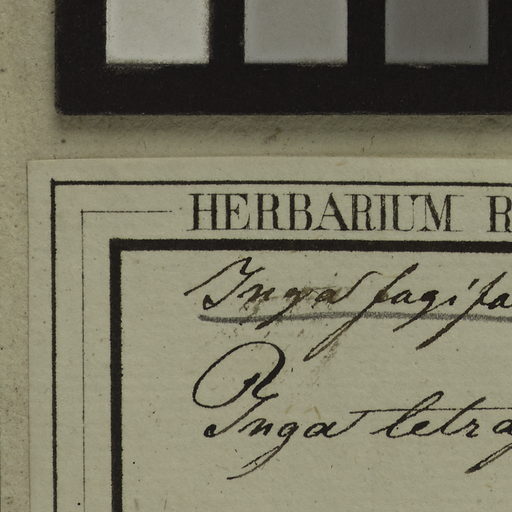 HERBARIUM R
Inga fagifa
Inga tetra